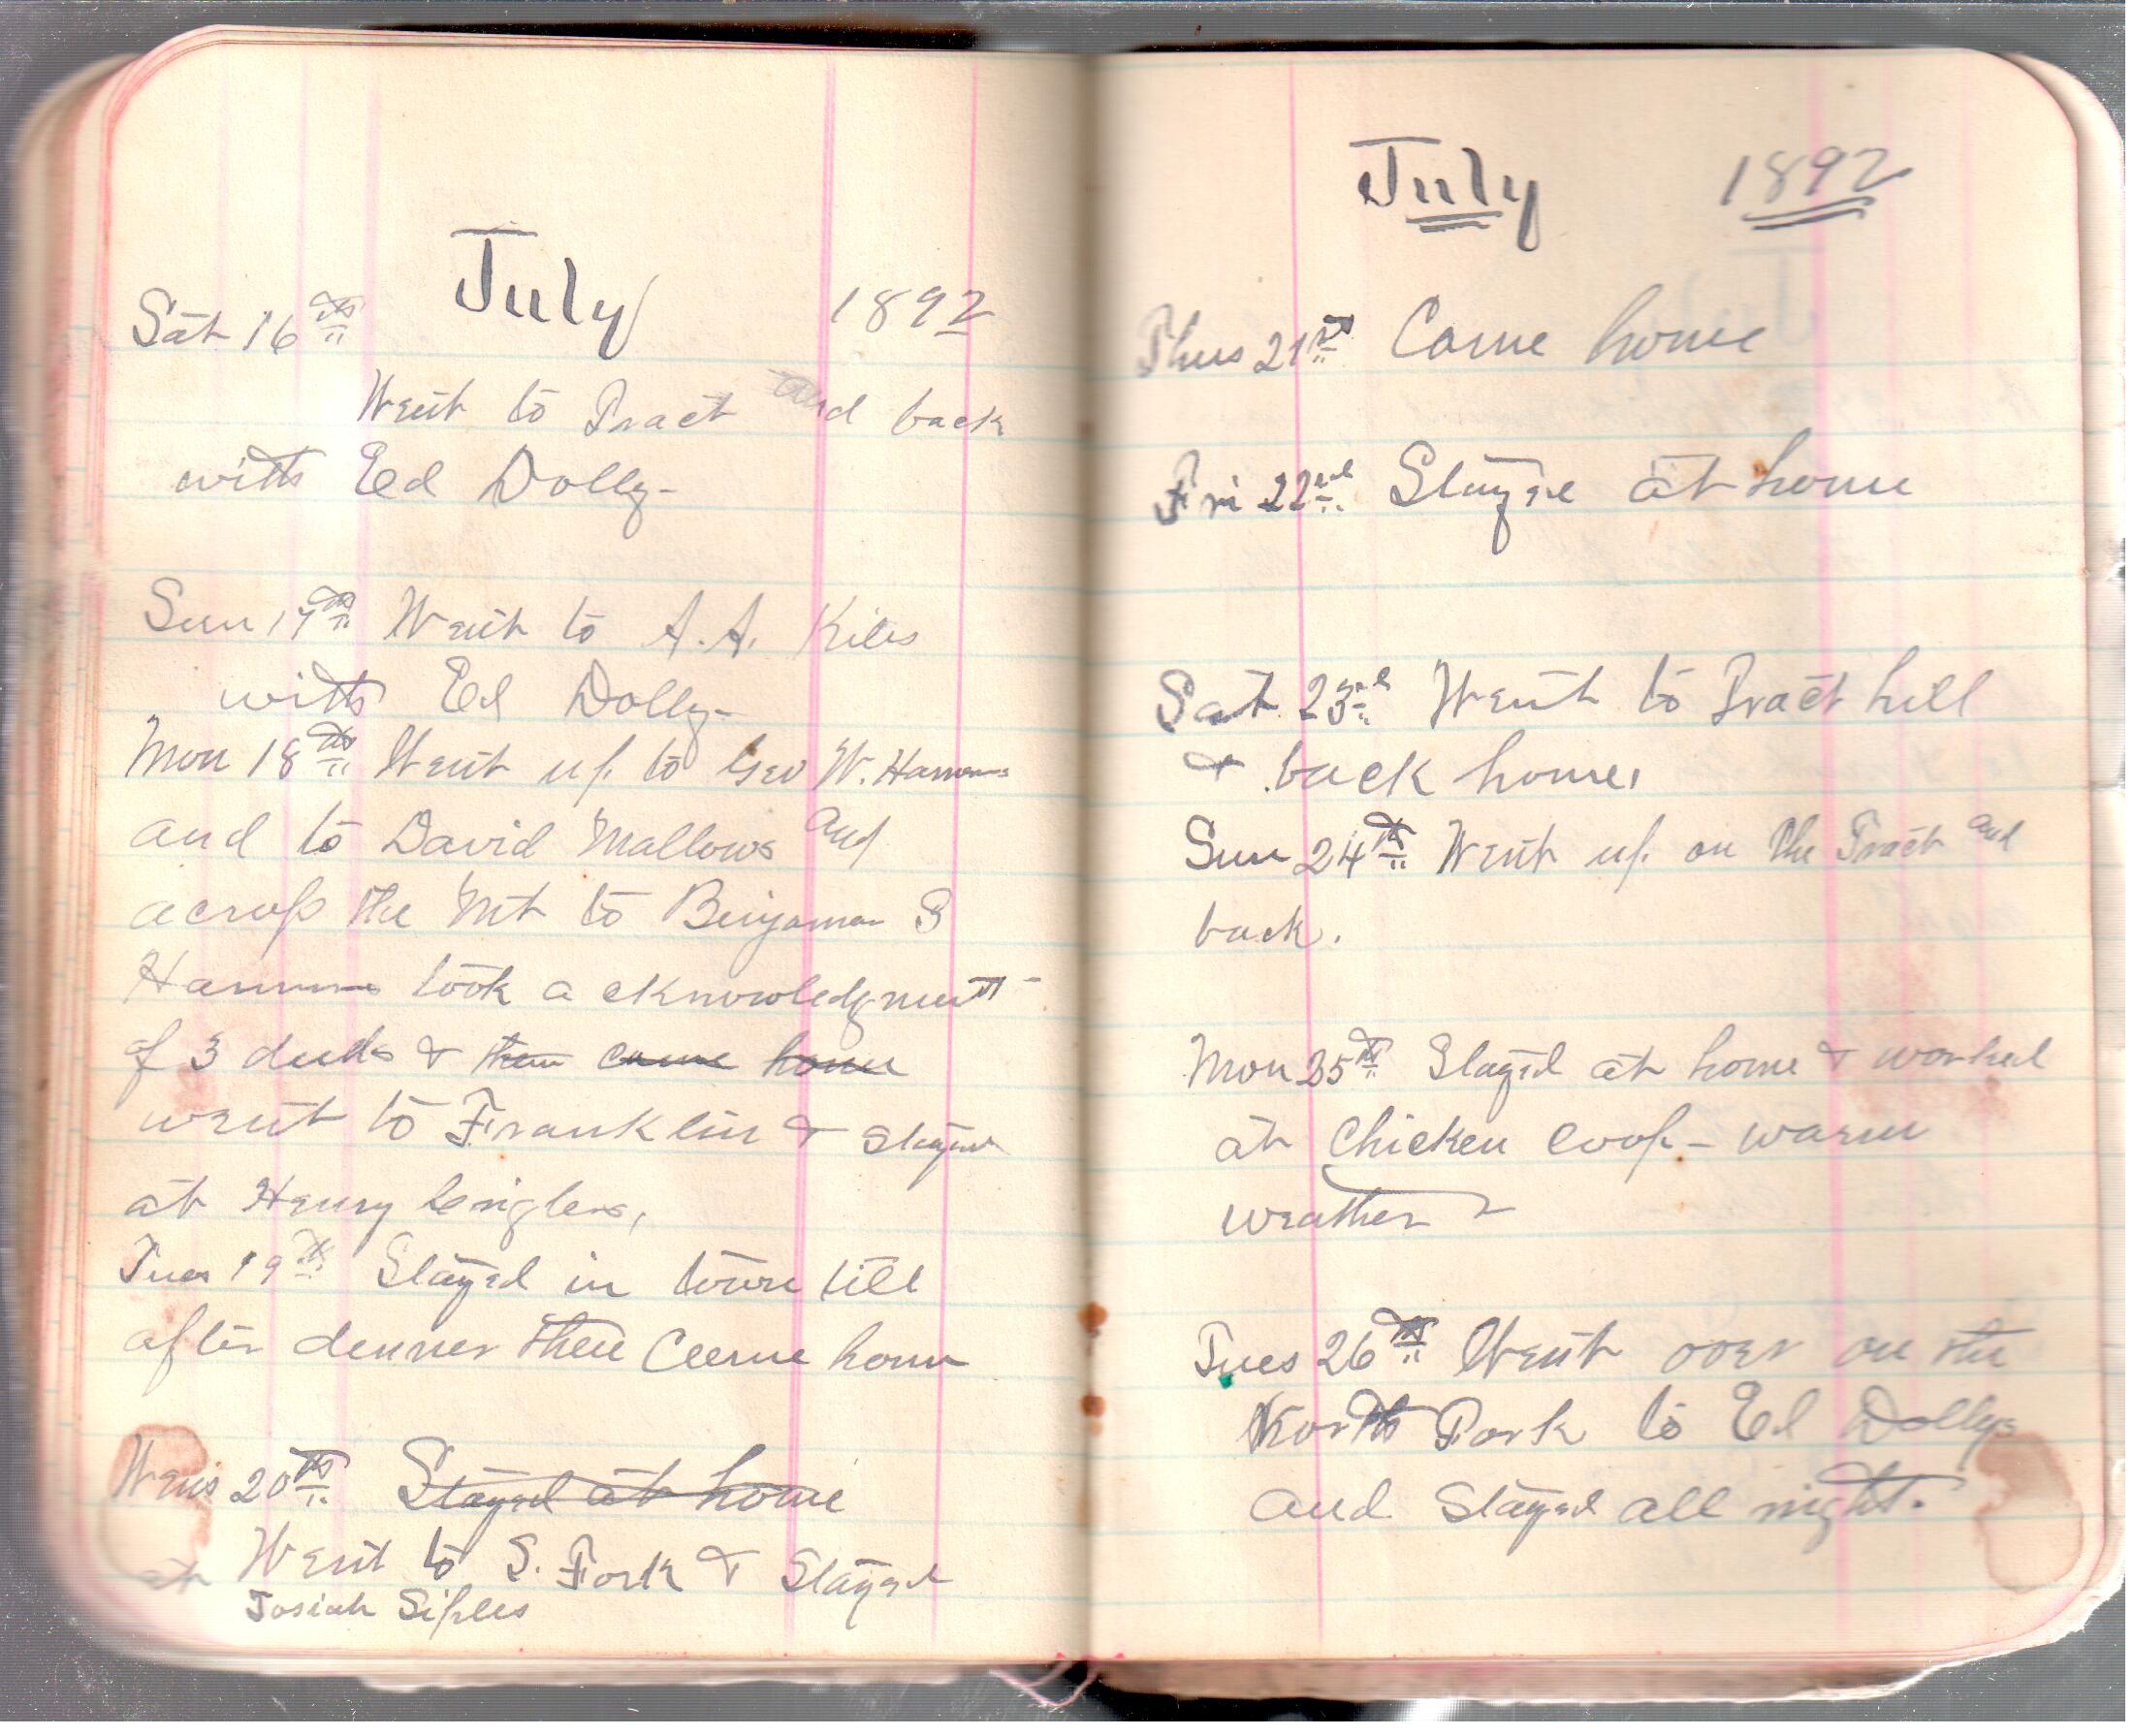 July 1892
Sat 16th
Went to Tract and back
with Ed Dolly-
Sun 17th Went to A. A. Kiles
with Ed Dolly-
Mon 18th Went up to Geo W. Harmans
and to David Mallows and
across the Mt to Benjaman S
Harmans took a cknowledgment
of 3 deeds & then came home
went to Franklin & stayed
at Henry
Tues 19th Stayed in town till
after denner then Came home
Wens 20th Stayed at home
Went to S. Fork & Stayed
at Josiah Siples
July 1892
Thus 21st Came home
Fri 22nd Stayed at home
Sat 23rd Went to Tract hill
& back home.
Sun 24th Went up on the Tract and
back.
Mon 25th Stayed at home & worked
at Chicken Coop - warm
weather
Tues 26th Went over on the
North Fork to Ed Dollys
and Stayed all night.